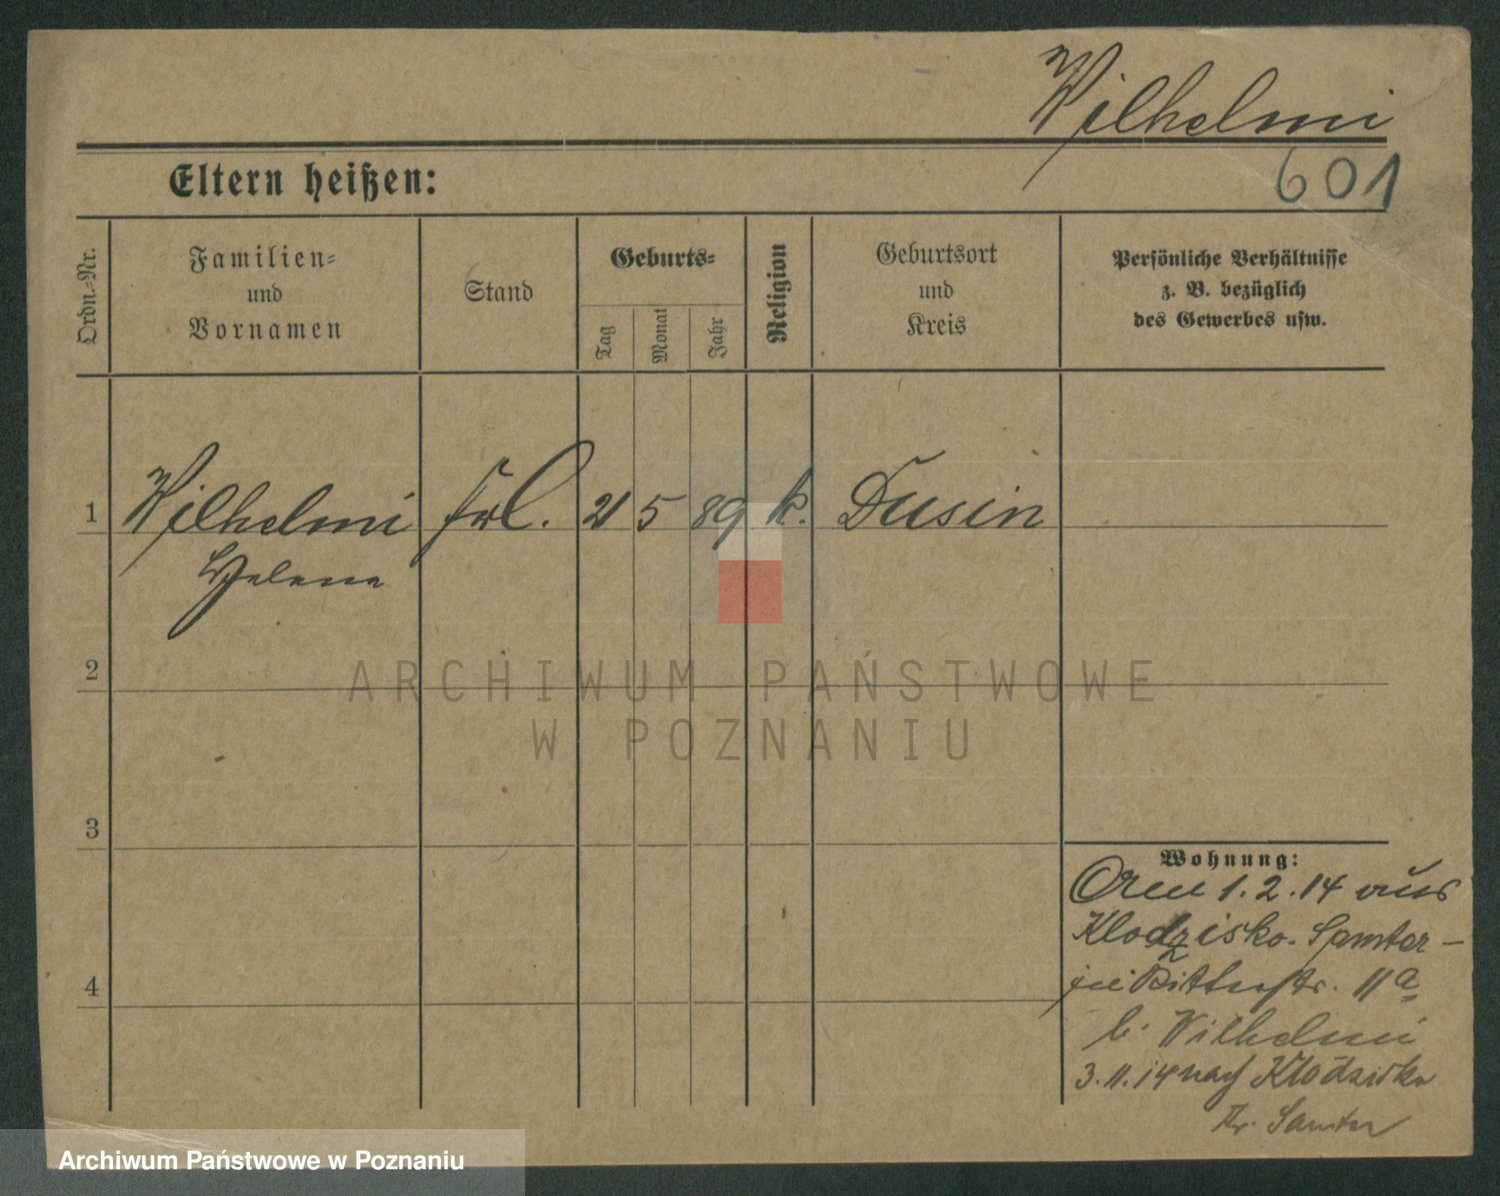 Wilhelmi
601
Eltern heißen:
Ordn.-Nr.
Familien-
und
Vornamen
Stand
Geburts-
Tag
Monat
Jahr
Religion
Geburtsort
und
Kreis
Persönliche Verhältnisse
z. B. bezüglich
des Gewerbes usw.
1 Wilhelmi Frl. 21 5 89 k. Dusin
Helena
2
3
4
Wohnung:
1.2.14 aus
Klodzisko. Samter-
Ritterstr. 11a
b. Wilhelmi
3.11.14 nach Klodzisko
Kr. Samter
ARCHIWUM PAŃSTWOWE
W POZNANIU
Archiwum Państwowe w Poznaniu